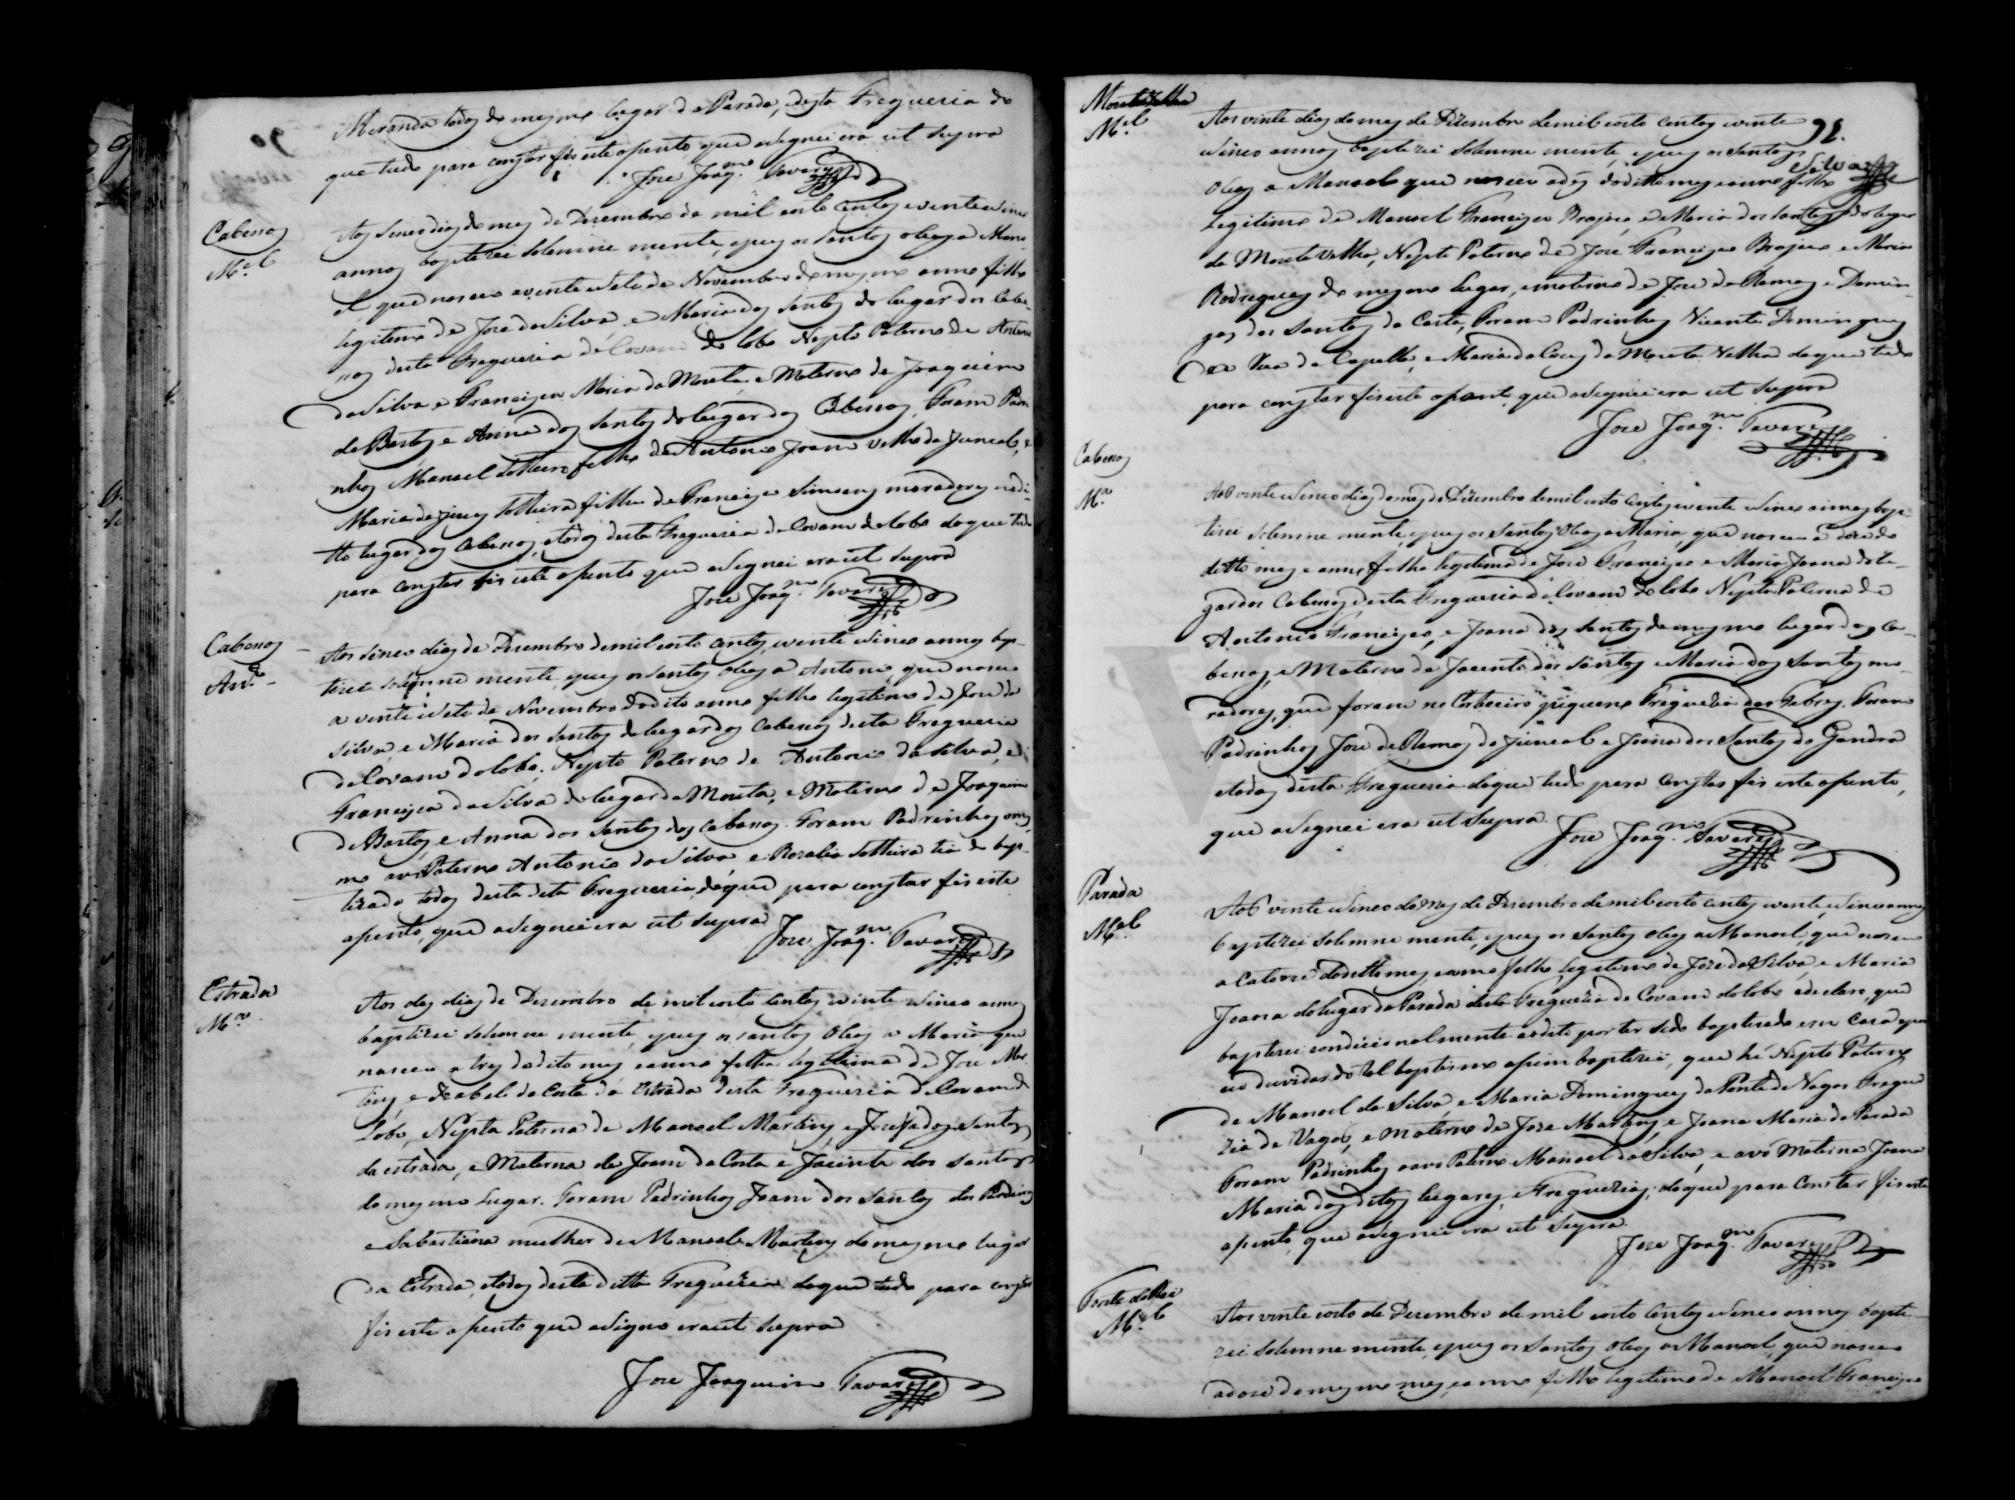 Miranda todos do mesmo lugar da Parada, desta Freguezia do
que tudo para constar fis este asento que asignei era ut supra
Joze Joaq.m Tavares
Cabesos
M.el
Aos sinco dias do mes de Dezembro de mil oito centos e vente e sinco
annos baptizei solemne mente, e pus os santos oleos a Mano-
el que nasceo a vente e sete de Novembro do mesmo anno filho
legitimo de Joze da Silva, e Maria dos Santos do lugar dos Cabe-
sos desta Freguezia de Covam do Lobo Nepto Paterno de Antonio
da Silva e Francisca Maria da Mouta, e Materno de Joaquim
de Bastos e Anna dos Santos do lugar dos Cabesos, Foram Padri-
nhos Manoel Solteiro filho de Antonio Joam velho do Juncal, e
Maria de Jesus Solteira filha de Francisco Simoens moradores no di-
tto lugar dos Cabesos, e todos desta Freguezia de Covam do Lobo do que tudo
para constar fis este asento que asignei era ut supra
Joze Joaq.m Tavares
Cabesos
An.to
Aos sinco dias de Dezembro de mil oito centos, e vente e sinco annos bap-
tizei solemne mente, e pus os santos oleos a Antonio, que nasceo
a vinte e sete de Novembro do dito anno filho legitimo de Joze da
Silva, e Maria dos Santos do lugar dos Cabesos desta Freguezia
de Covam do Lobo. Nepto Paterno de Antonio da Silva, e
Francisca da Silva do lugar da Mouta, e Materno de Joaquim
de Bastos, e Anna dos Santos dos Cabesos. Foram Padrinhos o mes-
mo avo Paterno Antonio da Silva e Rozalia Solteira tia do bap-
tizado todos desta dita Freguezia, do que para constar fis este
asento, que asignei era ut supra Joze Joaq.m Tavares
Estrada
M.a
Aos des dias de Dezembro de mil oito centos e vinte e sinco annos
baptizei solemne mente, e pus os santos oleos a Maria que
nasceo a tres do dito mes e anno filha legitima de Joze Mar-
tins, e Izabel da Costa da Estrada desta Freguezia de Covam do
Lobo, Nepta Paterna de Manoel Martins, e Josefa dos Santos
da estrada, e Materna de Joam da Costa e Jacinta dos Santos
do mesmo lugar. Foram Padrinhos Joam dos Santos dos
e Sabastiana mulher de Manoel Martins do mesmo lugar
da Estrada, e todos desta ditta Freguezia do que tudo para constar
fis este asento que asigno era ut supra
Joze Joaquim Tavares
Mouta Velha
M.el
91.
Silva
Aos vinte dias do mes de Dezembro de mil oito centos e vinte
e sinco annos baptizei solemne mente, e pus os santos
oleos a Manoel que nasceo a des do ditto mes e anno filho
legitimo de Manoel Francisco Brajeiro, e Maria dos Santos do lugar
da Mouta Velha, Nepto Paterno de Joze Francisco Brajeiro e Maria
Rodrigues do mesmo lugar, e materno de Joze de Ramos e Domin-
gas dos Santos da Costa, Foram Padrinhos Vicente Domingues
da Rua da Capella, e Maria da Cruz da Mouta Velha do que tudo
para constar fis este asento, que asignei era ut supra
Joze Joaq.m Tavares
Cabesos
M.a
Aos vinte e sinco dias do mes de Dezembro de mil oito centos e vente e sinco annos bap-
tizei solemne mente, e pus os santos oleos a Maria, que nasceo a doze do
ditto mes e anno filha legitima de Joze Francisco e Maria Joana do lu-
gar dos Cabesos, desta Freguezia de Covam do Lobo Nepta Paterna de
Antonio Francisco, e Joana dos Santos do mesmo lugar dos Ca-
besos, e Materna de Jacinto dos Santos e Maria dos Santos mo-
radores, que foram no Corticeiro piqueno Freguezia das Febres. Foram
Padrinhos Joze de Ramos do Juncal e Joana dos Santos do Gandra
e todos desta Freguezia do que tudo para constar fis este asento,
que asignei era ut Supra. Joze Joaq.m Tavares
Parada
M.el
Aos vinte e sinco do mes de Dezembro de mil oito centos e vente, e sinco annos
baptizei solemne mente, e pus os santos oleos a Manoel, que nasceo
a Catorze do ditto mes, e anno filho legitimo de Joze da Silva, e Maria
Joana do lugar da Parada desta Freguezia de Covam do Lobo e declaro, que
baptizei condicionalmente ao dito por ter sido baptizado em Caza, e por
eu duvidar do tal baptismo asim baptizei, que hé Nepto Paterno
de Manoel da Silva, e Maria Domingues da Ponte de Vagos Fregue-
zia de Vagos, e Materno de Joze Martins, e Joana Maria da Parada
Foram Padrinhos o avo Paterno Manoel da Silva, e avó Materna Joana
Maria dos ditos lugares, e Freguezias; do que para constar fis este
asento, que asignei era ut Supra.
Joze Joaq.m Tavares
Fonte do Rei
M.el
Aos vinte e oito de Dezembro de mil oito centos e sinco annos bapti-
zei solemne mente, e pus os santos oleos a Manoel, que nasceo
a doze do mesmo mes, e anno filho legitimo de Manoel Francisco